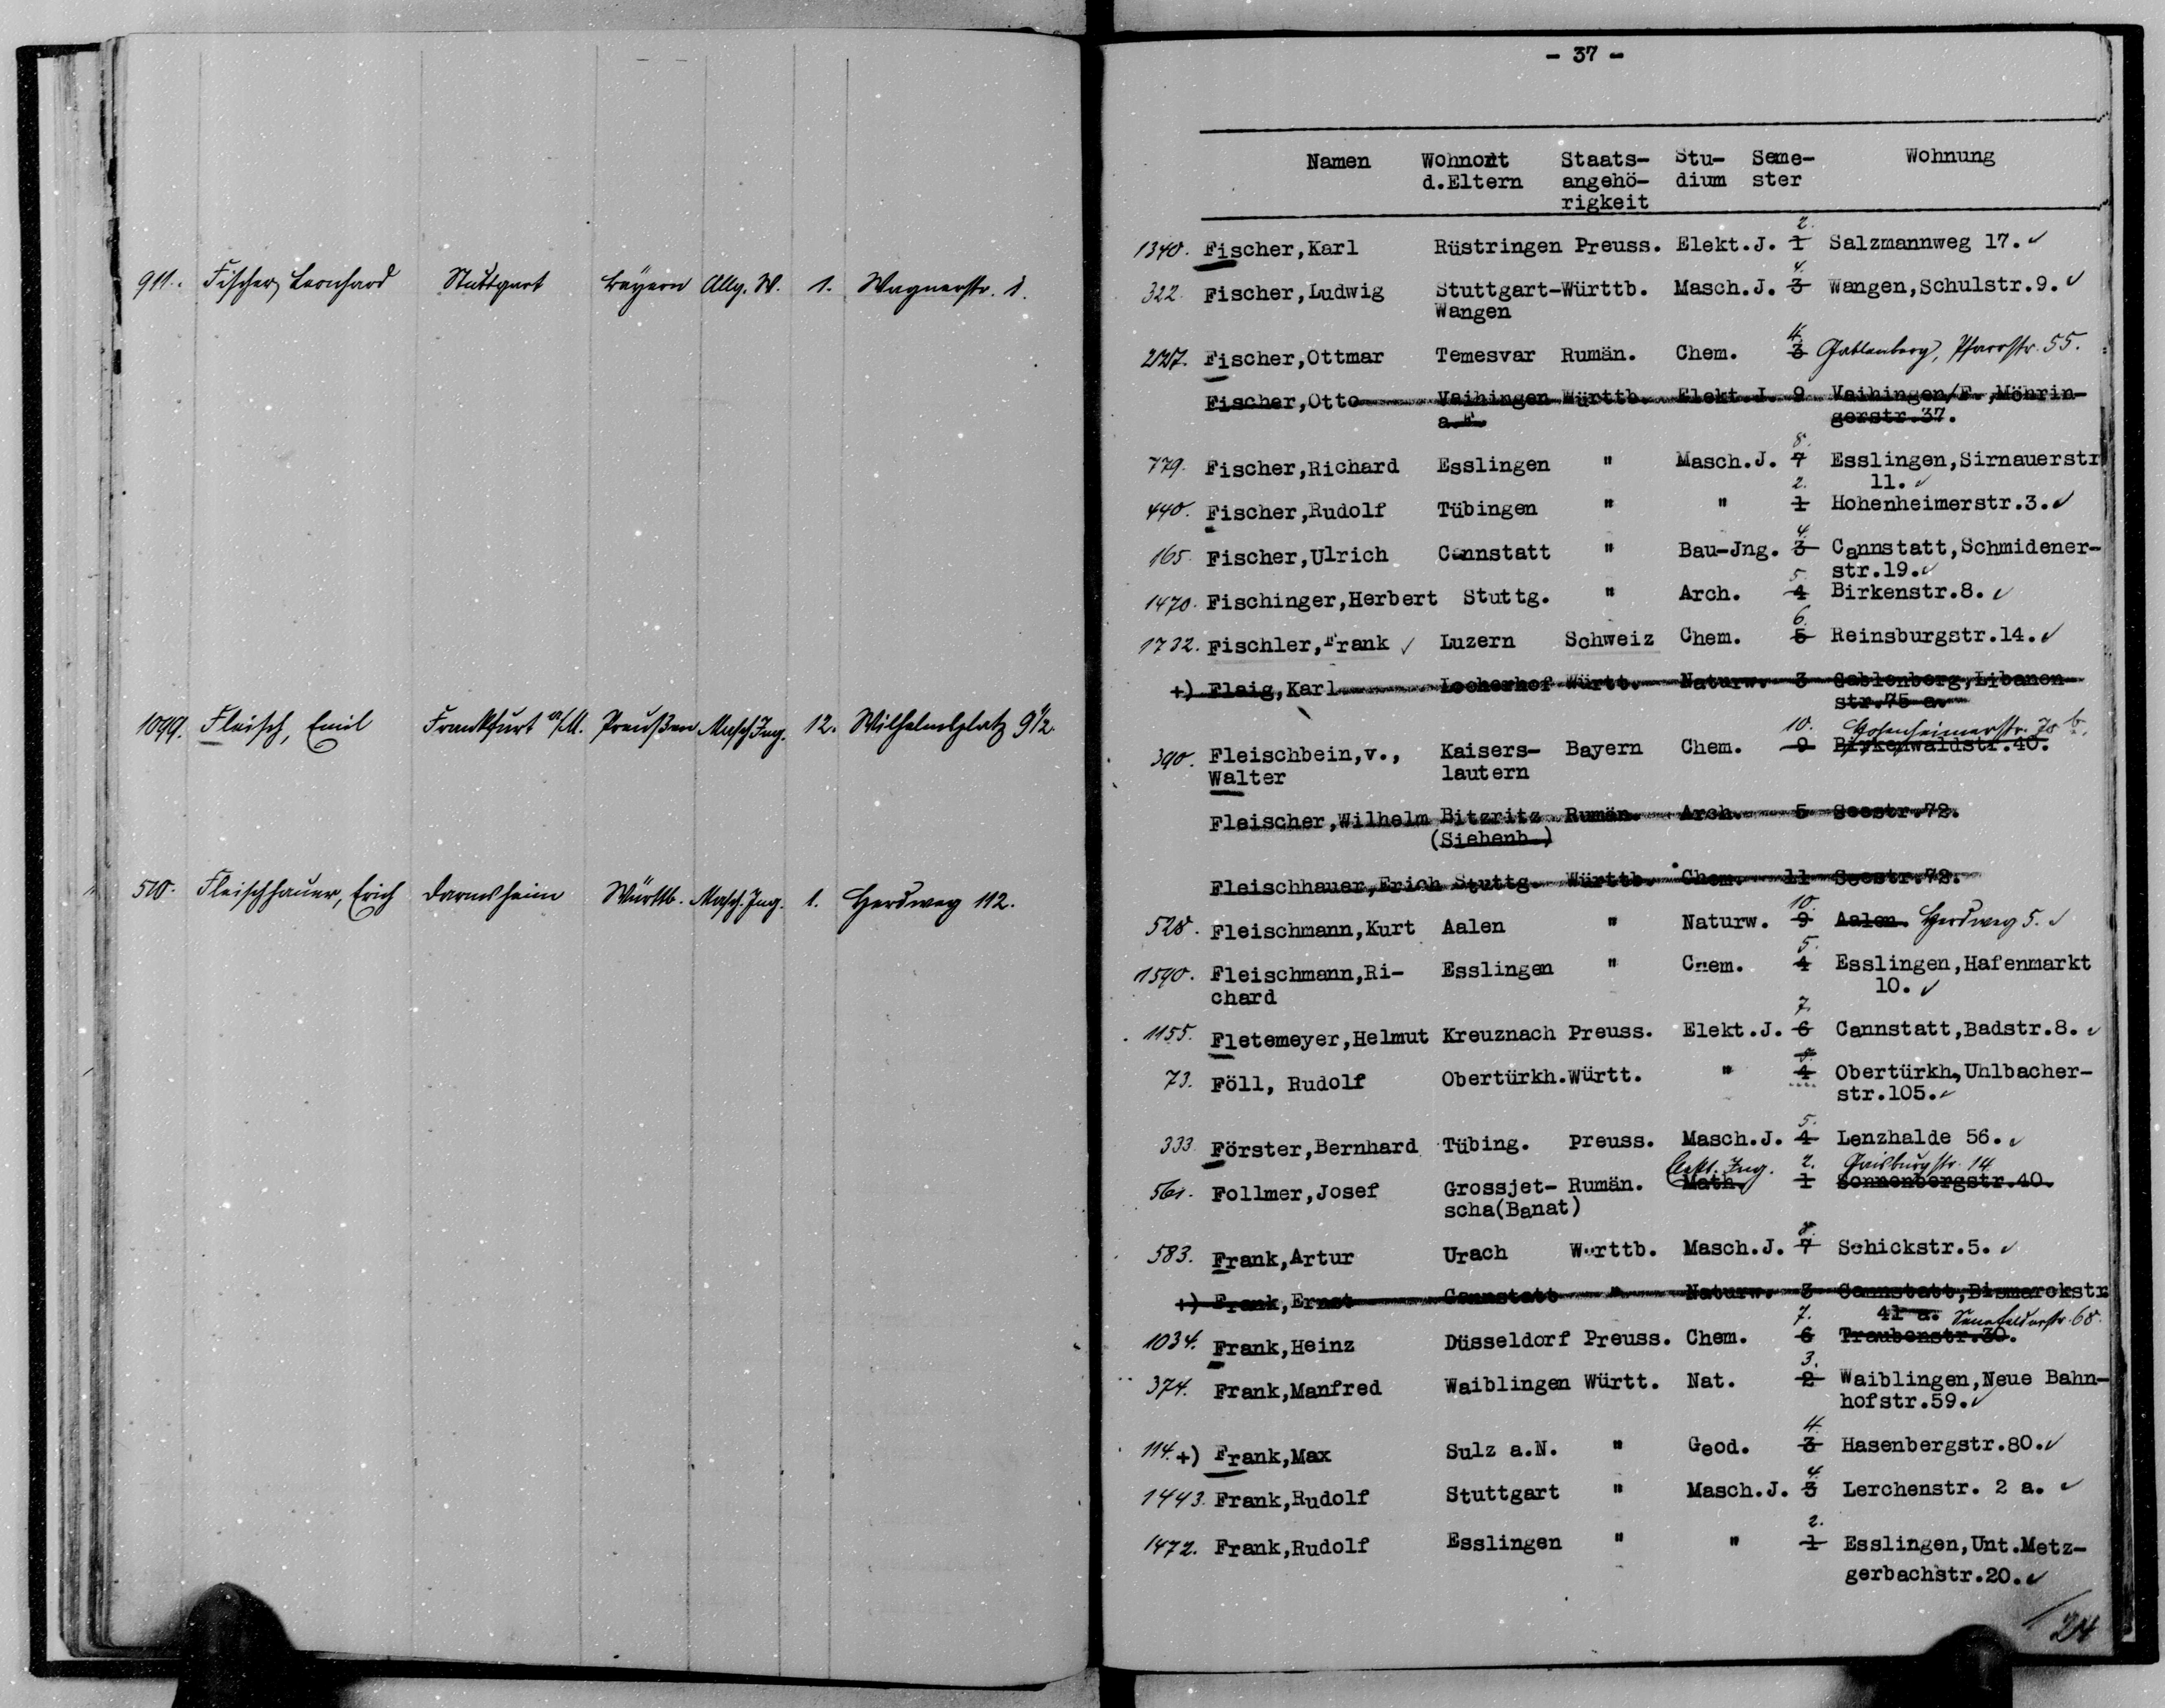 911. Fischer, Leonhard Stuttgart Bayern Allg. W. 1. Wagnerstr. 1.
1099. Fleisch, Emil Frankfurt a/M. Preußen Masch. Ing. 12. Wilhelmsplatz 9 1/2.
510. Fleischhauer, Erich Darmsheim Württb. Masch. Ing. 1. Herdweg 112.
- 37 -
Namen Wohnort Staats- Stu- Seme- Wohnung
d.Eltern angehö- dium ster
rigkeit
2.
1340. Fischer,Karl Rüstringen Preuss. Elekt.J. 1 Salzmannweg 17.
4.
322. Fischer,Ludwig Stuttgart-Württb. Masch.J. 3 Wangen,Schulstr.9.
Wangen
4.
Fischer,Ottmar Temesvar Rumän. Chem. 3 Gablenberg, Pfarrstr. 55.
Fischer,Otto Vaihingen Württb. Elekt.J. 9 Vaihingen/F.,Möhrin-
a.F. gerstr.37.
8.
779. Fischer,Richard Esslingen " Masch.J. 7 Esslingen,Sirnauerstr
2. 11.
440. Fischer,Rudolf Tübingen " " 1 Hohenheimerstr.3.
4.
165. Fischer,Ulrich Cannstatt " Bau-Jng. 3 Cannstatt,Schmidener-
5. str.19.
1470. Fischinger,Herbert Stuttg. " Arch. 4 Birkenstr.8.
6.
1732. Fischler,Frank Luzern Schweiz Chem. 5 Reinsburgstr.14.
+) Flaig,Karl Locherhof Württ. Naturw. 3 Gablenberg,Libanon-
str.75 a.
10. Hohenheimerstr. 78 b.
390. Fleischbein,v., Kaisers- Bayern Chem. 9 Birkenwaldstr.40.
Walter lautern
Fleischer,Wilhelm Bitzritz Rumän. Arch. 5 Seestr.72.
(Siebenb.)
Fleischhauer,Erich Stuttg. Württb. Chem. 11 Seestr.72.
10.
528. Fleischmann,Kurt Aalen " Naturw. 9 Aalen. Herdweg 5.
5.
1590. Fleischmann,Ri- Esslingen " Chem. 4 Esslingen,Hafenmarkt
chard 10.
7.
1155. Fletemeyer,Helmut Kreuznach Preuss. Elekt.J. 6 Cannstatt,Badstr.8.
5.
73. Föll, Rudolf Obertürkh.Württ. " 4 Obertürkh,Uhlbacher-
str.105.
5.
333. Förster,Bernhard Tübing. Preuss. Masch.J. 4 Lenzhalde 56.
Elekt. Ing. 2. Gaisburgstr. 14
561. Follmer,Josef Grossjet- Rumän. Math. 1 Sonnenbergstr.40.
scha(Banat)
8.
583. Frank,Artur Urach Württb. Masch.J. 7 Schickstr.5.
+) Frank,Ernst Cannstatt " Naturw. 3 Cannstatt,Bismarckstr
7. 41 a. Senefelderstr. 68.
1034. Frank,Heinz Düsseldorf Preuss. Chem. 6 Traubenstr.30.
3.
374. Frank,Manfred Waiblingen Württ. Nat. 2 Waiblingen,Neue Bahn-
hofstr.59.
4.
114. +) Frank,Max Sulz a.N. " Geod. 3 Hasenbergstr.80.
4.
1443. Frank,Rudolf Stuttgart " Masch.J. 3 Lerchenstr. 2 a.
2.
1472. Frank,Rudolf Esslingen " " 1 Esslingen,Unt.Metz-
gerbachstr.20.
24